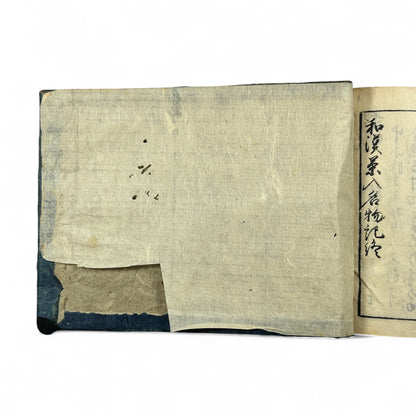 和漢茶入名物記終